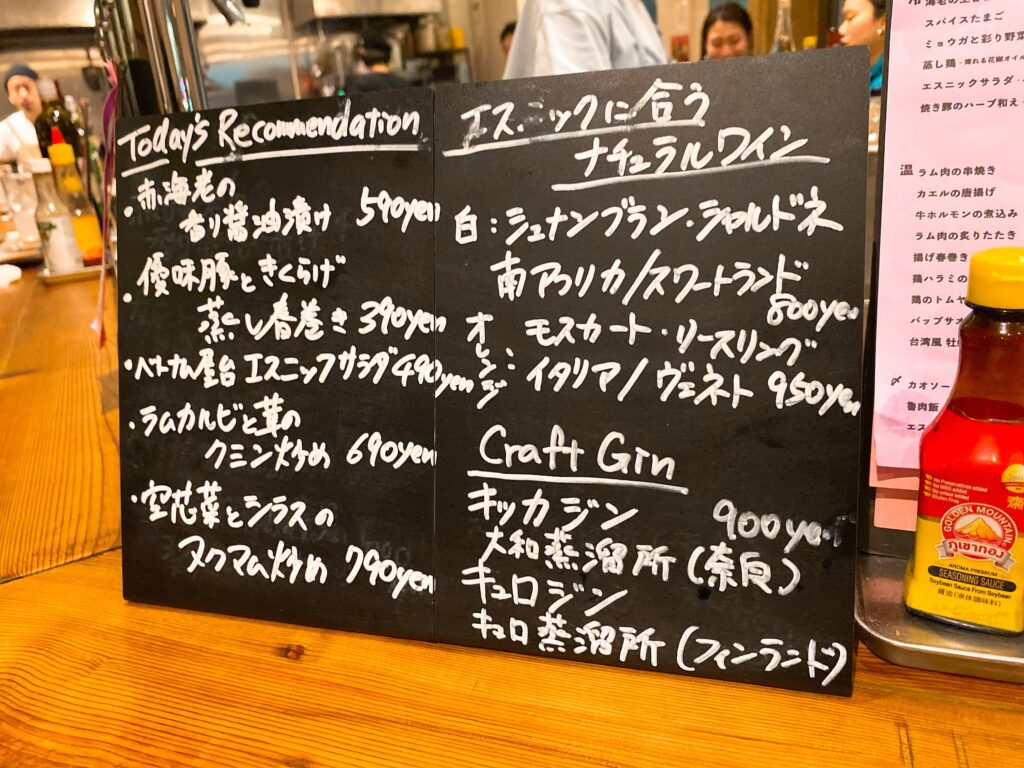 Today's Recommendation
・赤海老の
香り醤油漬け 590yen
・優味豚ときくらげ
蒸し春巻き 390yen
・ベトナム屋台 エスニックサラダ 490yen
・ラムカルビと茸の
クミン炒め 690yen
・空芯菜とシラスの
ヌクマム炒め 790yen
エスニックに合う
ナチュラルワイン
白:シュナンブラン・シャルドネ
南アフリカ/スワートランド
800yen
オレンジ: モスカート・リースリング
イタリア/ヴェネト 950yen
Craft Gin
キッカジン 900yen
大和蒸溜所(奈良)
キュロジン
キュロ蒸溜所(フィンランド)
スパイスたまご
ミョウガと彩り野菜
蒸し鶏 - 痺れる花椒オイル
エスニックサラダ
焼き豚のハーブ和え
温 ラム肉の串焼き
カエルの唐揚げ
牛ホルモンの煮込み
ラム肉の炙りたたき
揚げ春巻き
鶏ハラミの
鶏のトムヤ
パップサオ
台湾風 牡蠣
〆 カオソー
魯肉飯
エス
No Preservatives added
No MSG added
No colour added
Gluten Free
GOLDEN MOUNTAIN
ภูเขาทอง
AROMA PREMIUM
SEASONING SAUCE
Soybean Sauce From Soybean
醤油(液体調味料)